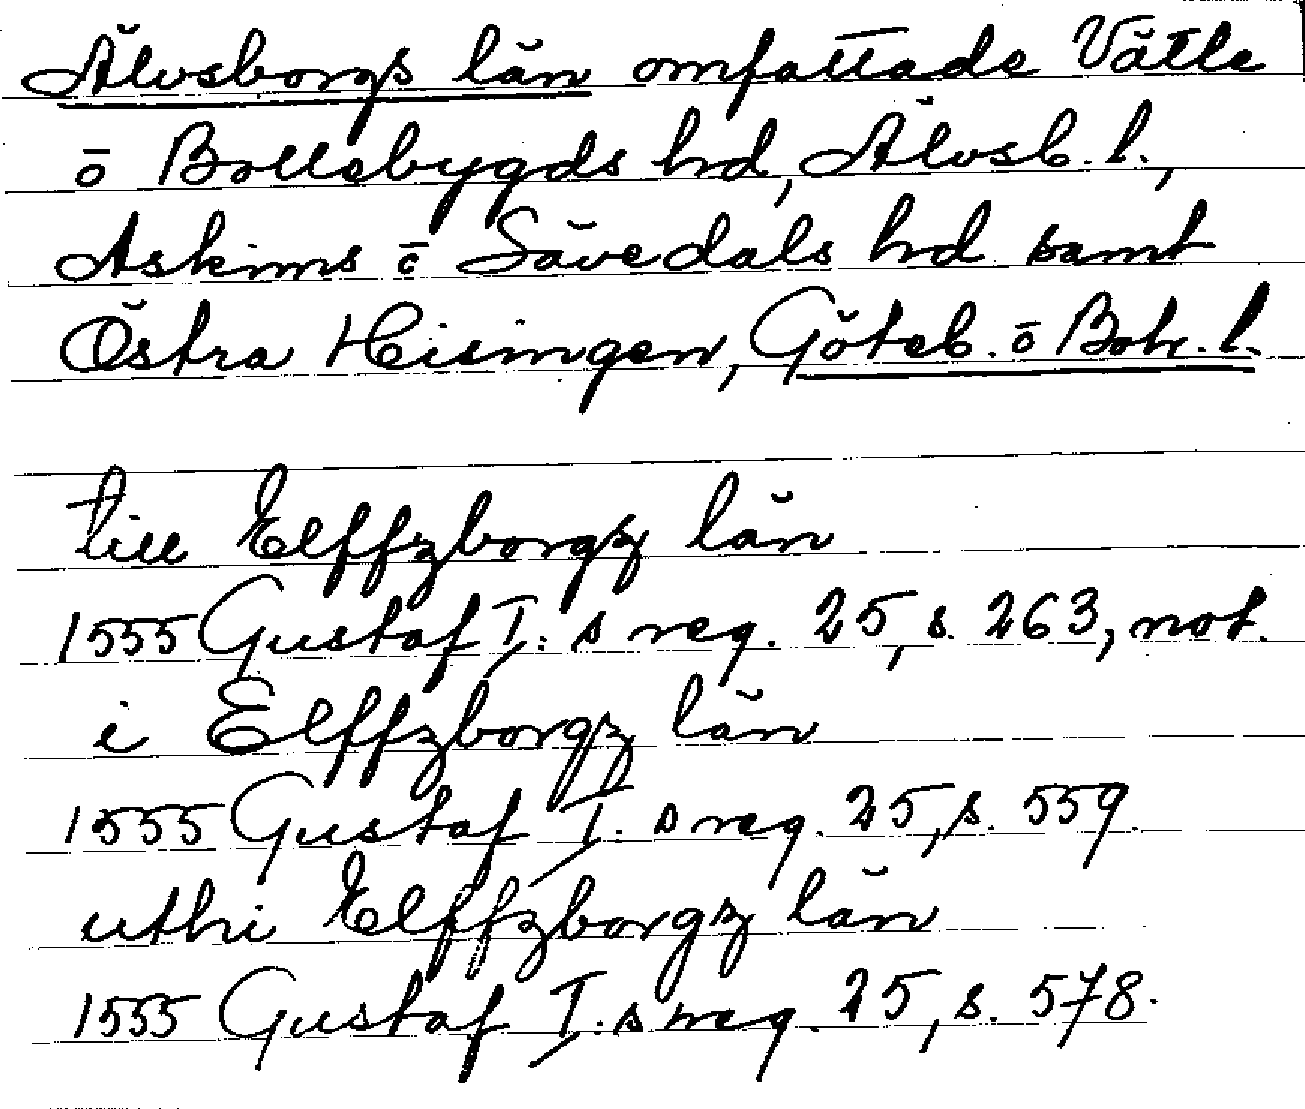 Älvsborgs län omfattade Vättle
o Bollebygds hrd, Älvsb. l.,
Askims o Sävedals hrd samt
Östra Hisingen, Göteb. o Boh. l.
till Elffzborgz län
1555 Gustaf I: s reg. 25, s. 263, not.
i Elffzborgz län
1555 Gustaf I: s reg. 25, s. 559.
uthi Elffzborgz län
1555 Gustaf I: s reg. 25, s. 578.